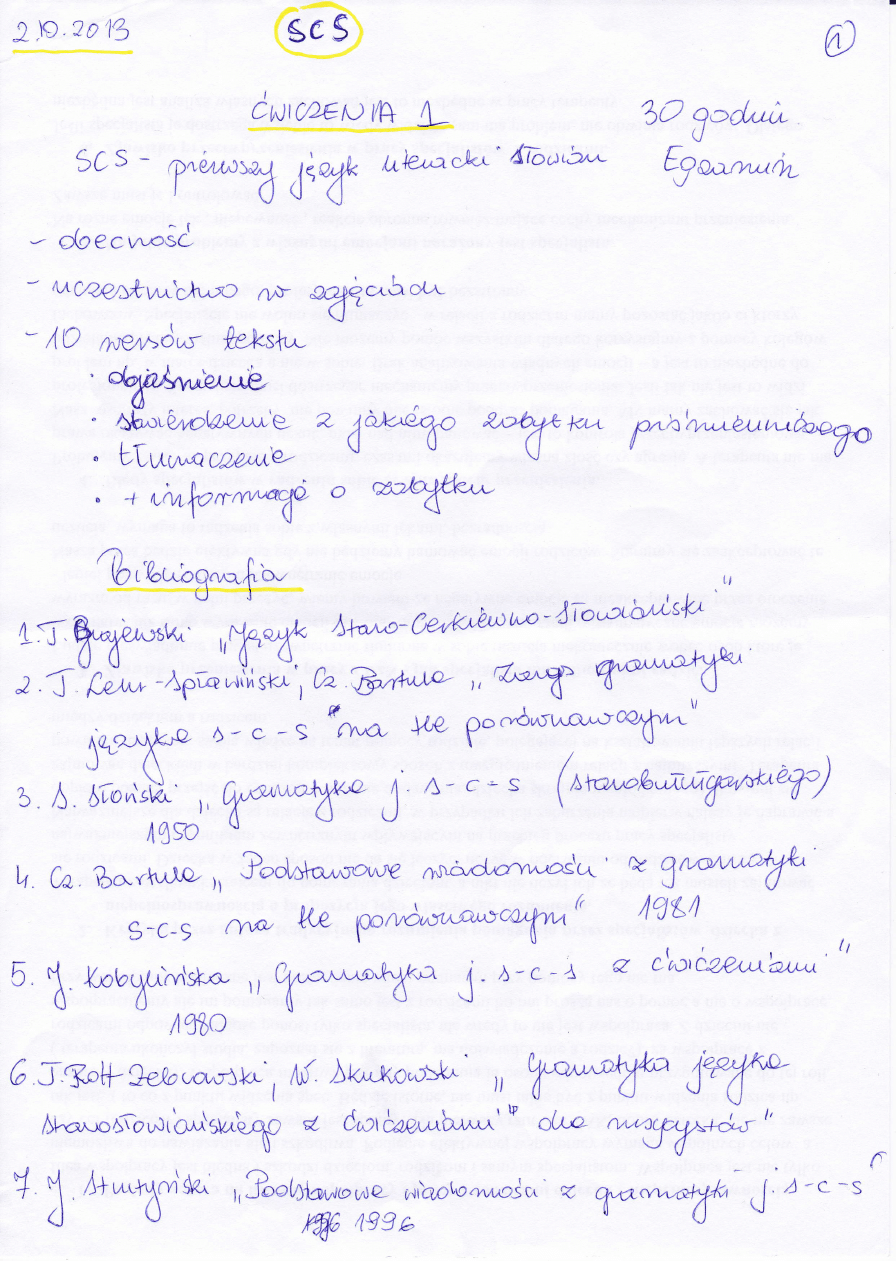 2.10.2013 SCS 1
ĆWICZENIA 1 30 godzin
SCS - pierwszy język literacki Słowian Egzamin
- obecność
- uczestnictwo w zajęciach
- 10 wersów tekstu
· objaśnienie
· stwierdzenie z jakiego zabytku piśmienniczego
· tłumaczenie
· + informacje o zabytku
Bibliografia
1. T. Brajerski „Język Staro-Cerkiewno Słowiański"
2. T. Lehr-Spławiński, Cz. Bartula „Zarys gramatyki
języka s-c-s na tle porównawczym"
3. S. Słoński „Gramatyka j. s-c-s (starobułgarskiego)
1950
4. Cz. Bartula „Podstawowe wiadomości z gramatyki
s-c-s na tle porównawczym" 1981
5. J. Kobylińska „Gramatyka j. s-c-s z ćwiczeniami"
1980
6. T. Rott-Żebrowski, W. Skukowski „Gramatyka języka
starosłowiańskiego z ćwiczeniami" dla rusycystów"
7. J. Strutyński „Podstawowe wiadomości z gramatyki j. s-c-s"
1996